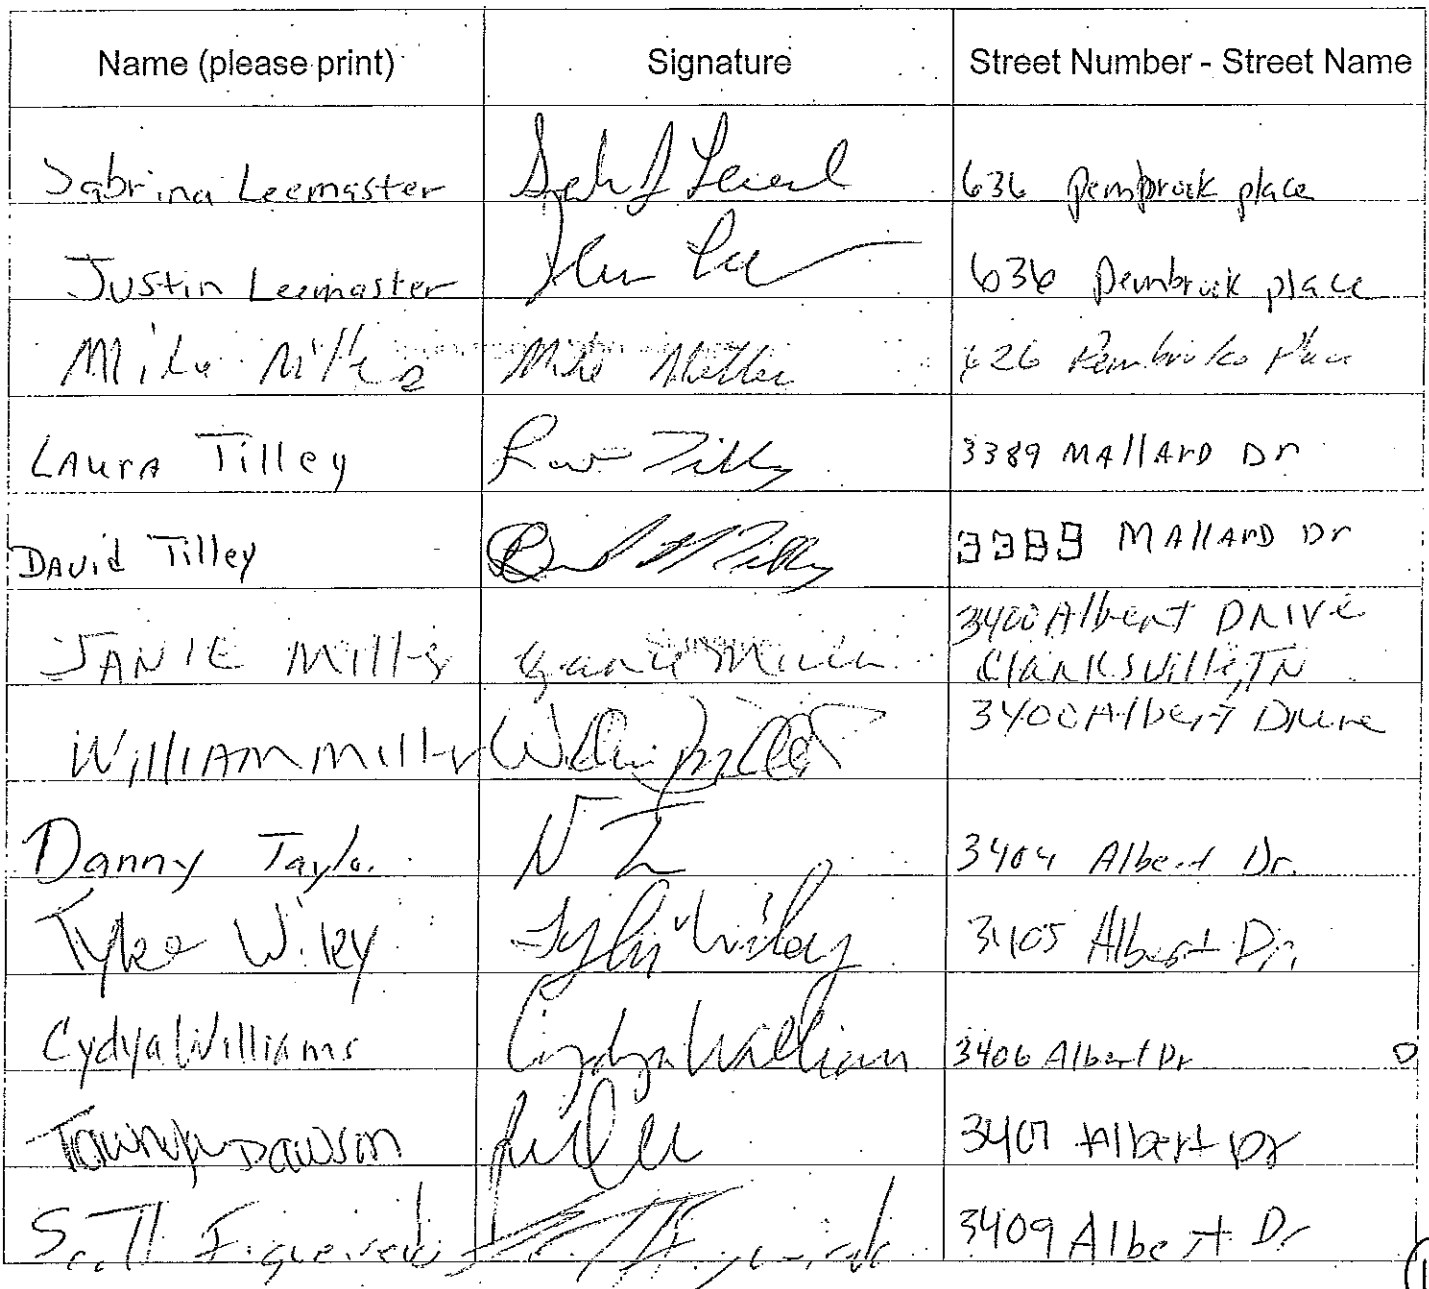 Name (please print) Signature Street Number - Street Name
Sabrina Leemaster 636 Pembrook place
Justin Leemaster 636 Pembrook place
Mike 626 Pembroke Place
LAURA Tilley Tilley 3389 MAllARD Dr
DAVid Tilley Tilley 3389 MAllARD Dr
JANIE Mills 3400 Albert DRIVE
Clarksville, TN
WilliAM Mills 3400 Albert Drive
Danny Taylor 3404 Albert Dr.
Tyler Wiley Tyler Wiley 3405 Albert Dr.
Cydya Williams Cydya William 3406 Albert Dr
DAWSON 3407 Albert Dr
Scott Figueiredo 3409 Albert Dr